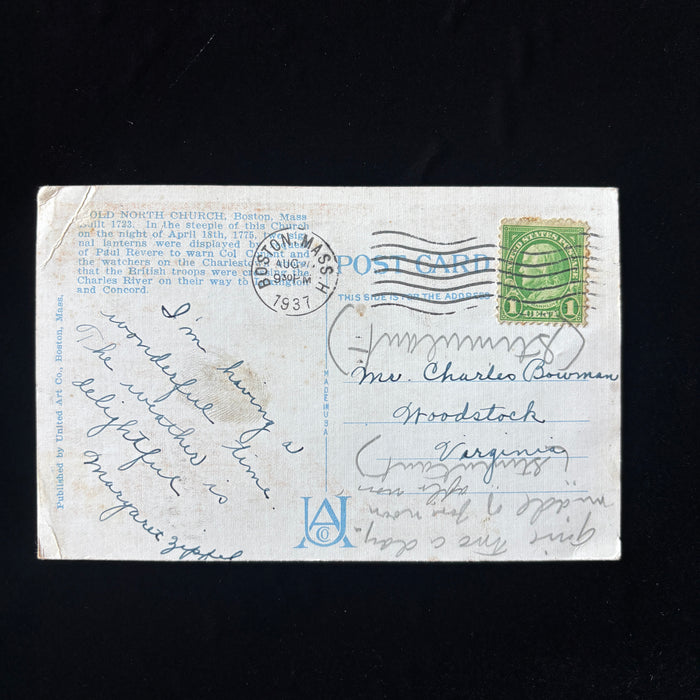 OLD NORTH CHURCH, Boston, Mass
Built 1723. In the steeple of this Church
on the night of April 18th, 1775,
nal lanterns were displayed by
of Paul Revere to warn Col and
the watchers on the Charlestown
that the British troops were the
Charles River on their way to
and Concord.
BOSTON, MASS.
AUG
930 PM
1937
POST CARD
THIS SIDE IS FOR THE ADDRESS
UNITED STATES POSTAGE
1 CENT 1
Published by United Art Co., Boston, Mass.
MADE IN USA
I'm having a
wonderful time.
The weather is
delightful
Margaret Zippel
Mr. Charles Bowman
Woodstock
Virginia
UA
CO
(Stimulant)
give two a day.
middle of fore noon
after noon
(Stimulant)